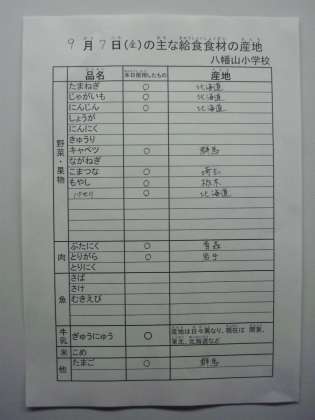 9月7日(金)の主な給食食材の産地
八幡山小学校
品名 本日使用したもの 産地
野菜・果物
たまねぎ ○ 北海道
じゃがいも ○ 北海道
にんじん ○ 北海道
しょうが
にんにく
きゅうり
キャベツ ○ 群馬
ながねぎ
こまつな ○ 埼玉
もやし ○ 栃木
パセリ ○ 北海道
肉
ぶたにく ○ 青森
とりがら ○ 岩手
とりにく
魚
さば
さけ
むきえび
牛乳 ぎゅうにゅう ○ 産地は日々異なり、現在は 関東、
東北、北海道など
米 こめ
他 たまご ○ 群馬